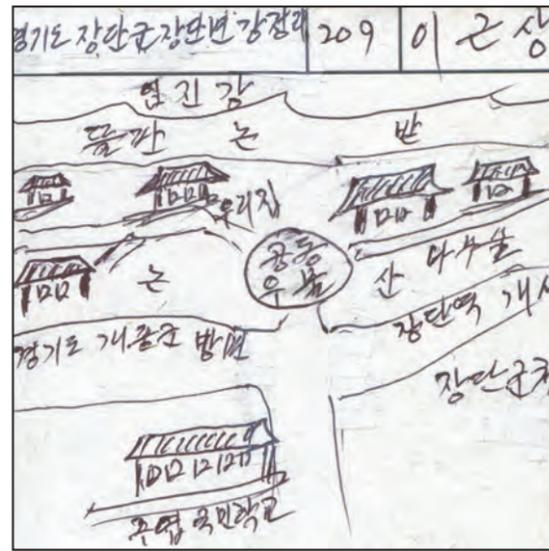 경기도 장단군 장단면 강정리 209 이근상
임진강
들판 논 밭
우리집
공동
우물
논
산
장단역
경기도 개풍군 방면
장단군청
국민학교